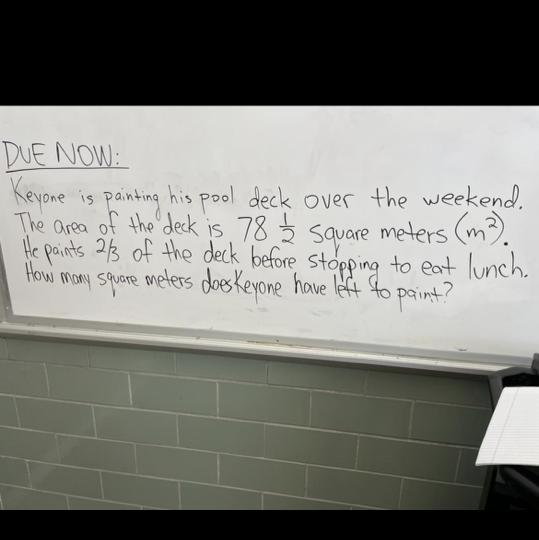 DUE NOW:
Keyone is painting his pool deck over the weekend.
The area of the deck is 78 1/2 square meters (m²).
He paints 2/3 of the deck before stopping to eat lunch.
How many square meters does Keyone have left to paint?